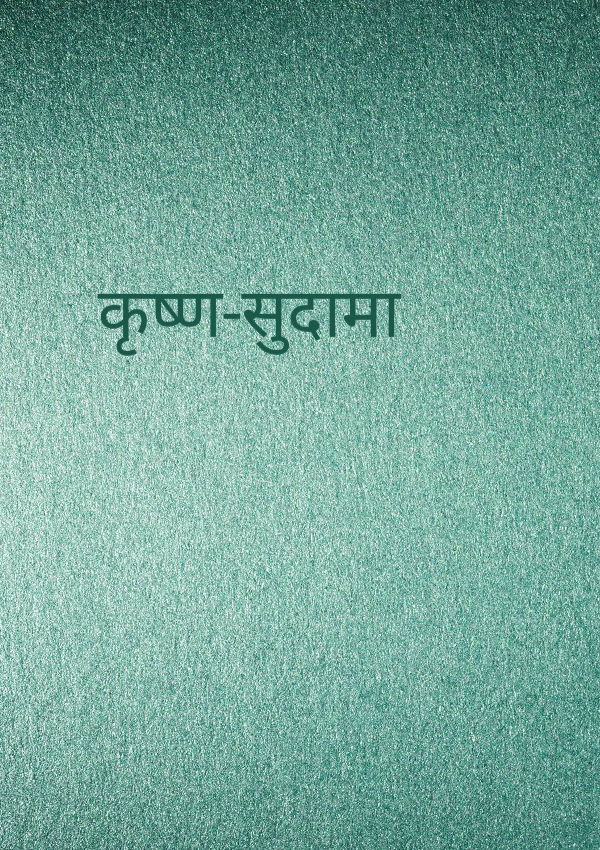 कृष्ण-सुदामा